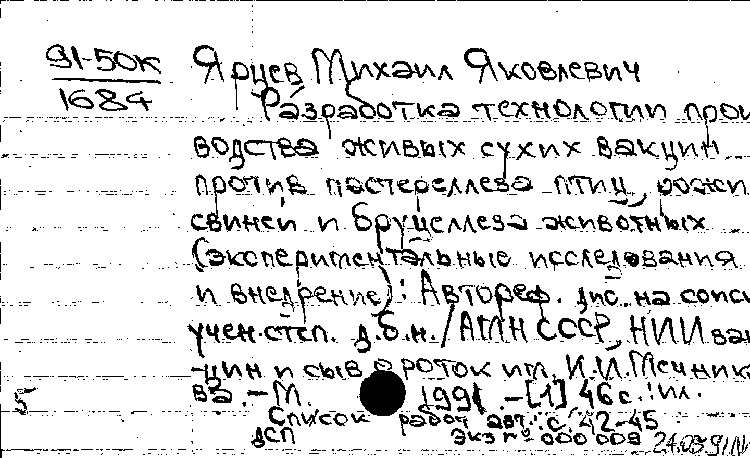 91-50к
1684
Ярцев Михаил Яковлевич
Разработка технологии прои
водства живых сухих вакцин
против пастереллеза птиц, рожи
свиней и бруцеллеза животных
(экспериментальные исследования
и внедрение): Автореф. дис. на соиск
учен.степ. д.б.н./АМН СССР, НИИ вак
цин и сывороток им. И.И.Мечник
ва. - М. 1991. - [1] 46 с.: ил.
5
Список работ авт.: с. 42-45
ДСП экз № 000009 24.09.91